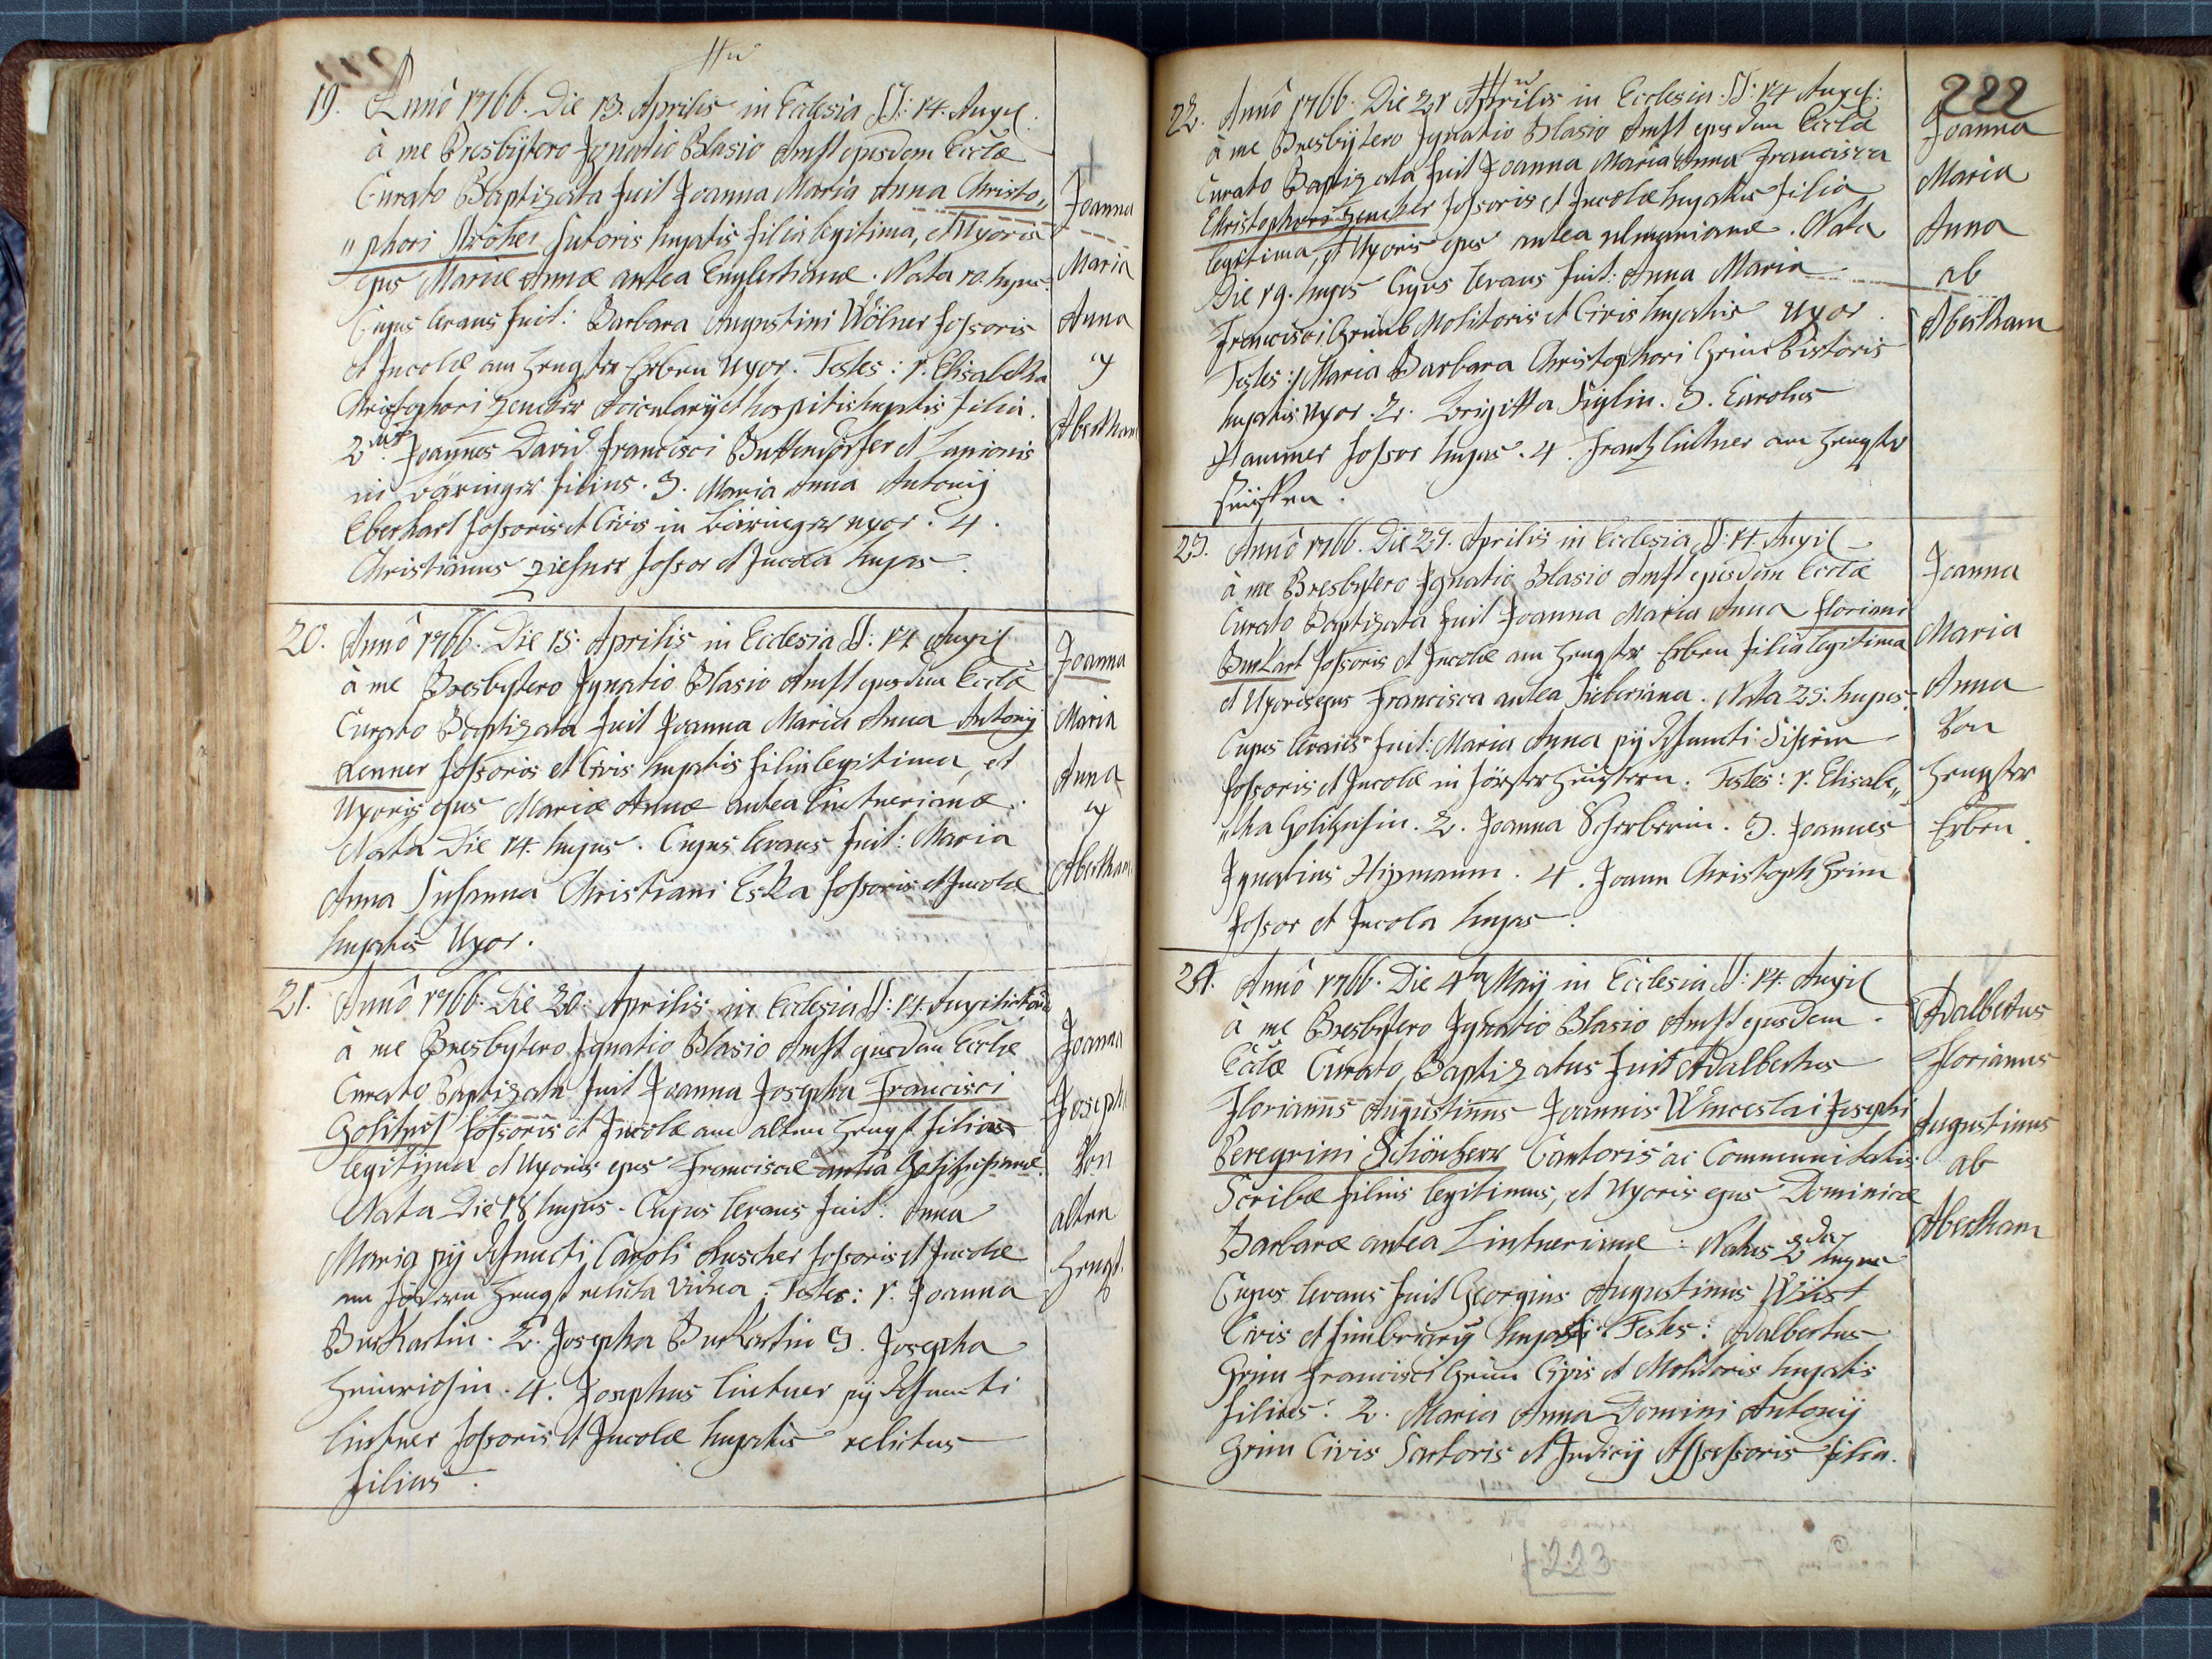 19. Anno 1766. Die 13. Aprilis in Ecclesia SS: 14. Auxil.
à me Presbÿtero Ignatio Blasio Amst ejusdem Eccłæ
Curato Baptizata fuit Joanna Maria Anna Christo„
„phori Ströher Sutoris hujatis filia legitima, et Uxoris
ejus Mariæ Annæ antea Englertianæ. Nata 10. hujus.
Cujus levans fuit: Barbara Augustini Wölner fossoris
et Incolæ am Hengster Erben uxor. Testes: 1. Elisabetha
Christophori Zencker et hospitis hujatis filia.
2. Joannes David Francisci et
in Bäringer filius. 3. Maria Anna Antonij
Eberhart fossoris et Civis in Bäringer uxor. 4.
Christianus fossor et Incola hujas.
Joanna
Maria
Anna
Abertham
20. Anno 1766. Die 15. Aprilis in Ecclesia SS: 14 Auxil
à me Presbytero Ignatio Blasio Amst ejusdem Eccłæ
Curato Baptizata fuit Joanna Maria Anna Antonij
Lenner fossoris et Civis hujatis filia legitima, et
Uxoris ejus Mariæ Annæ antea Lintnerianæ.
Nata Die 14. hujus. Cujus levans fuit: Maria
Anna Susanna Christiani Eska fossoris et Incolæ
hujatis Uxor.
Joanna
Maria
Anna
Abertham
21. Anno 1766. Die 20. Aprilis in Ecclesia SS: 14. Auxiliat
à me Presbytero Ignatio Blasio Amst ejusdem Eccłæ
Curato Baptizata fuit Joanna Josepha Francisci
fossoris et Incolæ am alten Hengst filia
legitima et Uxoris ejus Franciscæ antea
Nata Die 18 hujus. Cujus levans fuit: Anna
Maria pij defuncti Caroli Luscher fossoris et Incolæ
am Hengst relicta Vidua. Testes: 1. Joanna
Burkartin. 2. Josepha Burkartin 3. Josepha
Heinrichin. 4. Josephus Lintner pij defuncti
Lintner fossoris et Incolæ hujatis relictus
filius.
Joanna
Joseph
Von
alten
Hengst.
222
22. Anno 1766. Die 21 Aprilis in Ecclesia. SS: 14 Auxil:
à me Presbÿtero Ignatio Blasio Amst ejusdem Eccłæ
Curato Baptizata fuit Joanna Maria Anna Francisca
Christophori Zencker fossoris et Incolæ hujatis filia
legitima, et Uxoris ejus antea Ulmanianæ. Nata
Die 19. hujus Cujus levans fuit: Anna Maria
Francisci Grimb Molitoris et Civis hujatis Uxor.
Testes: 1 Maria Barbara Christophori Grim Pistoris
hujatis uxor. 2. Brigitta Siglin. 3. Carolus
Hammer fossor hujas. 4. Frantz Lintner am Hengster
Joanna
Maria
Anna
ab
Abertham
23. Anno 1766. Die 27. Aprilis in Ecclesia SS: 14. Auxil
à me Presbytero Ignatio Blasio Amst ejusdem Eccłæ
Curato Baptizata fuit Joanna Maria Anna Floriani
Burkart fossoris et Incolæ am Hengster Erben filia legitima
et Uxoris ejus Francisca antea Sieberiana. Nata 25. hujus.
Cujus levans fuit: Maria Anna pij defuncti
fossoris et Incolæ in Testes: 1. Elisabe„
„tha. 2. Joanna Scherberin. 3. Joannes
Ignatius Hipmann. 4. Joann Christoph Grim
fossor et Incola hujas.
Joanna
Maria
Anna
Von
Hengster
Erben.
24. Anno 1766. Die 4ta Maij in Ecclesia SS: 14. Auxil
à me Presbytero Ignatio Blasio Amst ejusdem
Eccłæ Curato Baptizatus fuit Adalbertus
Florianus Augustinus Joannis Wenceslai Josephi
Peregrini Schönherr Cantoris ac Communitatis
Scribæ filius legitimus, et Uxoris ejus Dominicæ
Barbaræ antea Lintnerianæ. Natus 2da hujus
Cujus levans fuit Georgius Augustinus Wüst
Civis et fimbriarij hujas. Testes: Adalbertus
Grim Francisci Grim Civis et Molitoris hujatis
filius. 2. Maria Anna Domini Antonij
Grim Civis Sartoris et Judicij Assessoris filia.
Adalbertus
Florianus
Augustinus
ab
Abertham
223